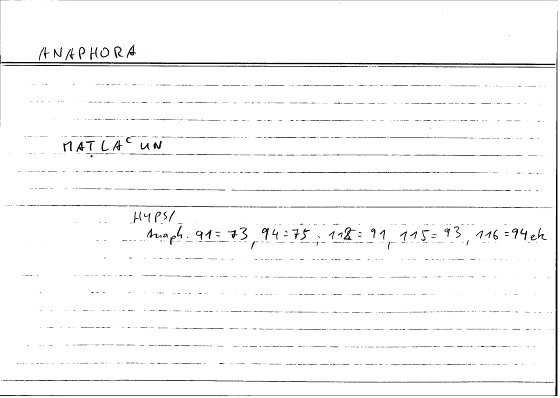 ANAPHORA
MAṬLAᶜ UN
HYPS/
Anaph. 91=73, 94=75, 112=91, 115=93, 116=94 ek